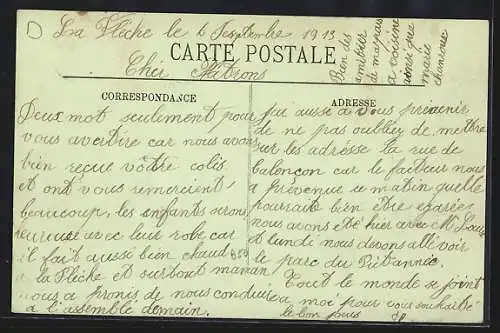 La Flèche le 6 Septembre 1913
CARTE POSTALE
Chei Patrons
Bien des
amitiés
de ma part
a voisine
ainsi que
marie
CORRESPONDANCE
Deux mot seulement pour
vous avertire car nous avons
bien reçue vôtre colis
et ont vous remercient
beaucoup, les enfants serons
heureuse avec leur robe car
il fait aussi bien chaud
a la Flèche et surtout maman
nous a promis de nous conduire
a l'assemblé demain.
ADRESSE
J'ai aussi a vous prévenir
de ne pas oublier de mettre
sur les adresse la rue de
balançon car le facteur nous
a prévenue ce matin quelle
pourrait bien être égarée
nous avons été hier avec Mr
et lundi nous devons allé voir
le parc du Pritannée.
Tout le monde se joint
a moi pour vous souhaité
le bon jours